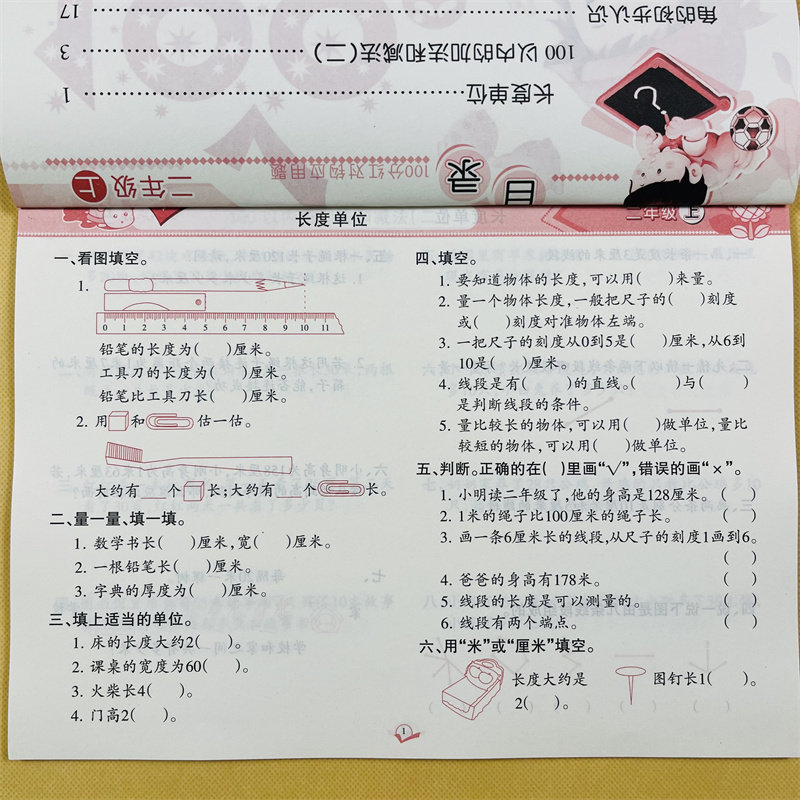 角的初步认识 17
100 以内的加法和减法(二) 3
长度单位 1
目录
100分红对钩应用题
二年级 上
长度单位
二年级 上
一、看图填空。
1.
0 1 2 3 4 5 6 7 8 9 10 11
铅笔的长度为( )厘米。
工具刀的长度为( )厘米。
铅笔比工具刀长( )厘米。
2. 用和估一估。
大约有___个长;大约有___个长。
二、量一量、填一填。
1. 数学书长( )厘米,宽( )厘米。
2. 一根铅笔长( )厘米。
3. 字典的厚度为( )厘米。
三、填上适当的单位。
1. 床的长度大约2( )。
2. 课桌的宽度为60( )。
3. 火柴长4( )。
4. 门高2( )。
四、填空。
1. 要知道物体的长度,可以用( )来量。
2. 量一个物体长度,一般把尺子的( )刻度
或( )刻度对准物体左端。
3. 一把尺子的刻度从0到5是( )厘米,从6到
10是( )厘米。
4. 线段是有( )的直线。( )与( )
是判断线段的条件。
5. 量比较长的物体,可以用( )做单位,量比
较短的物体,可以用( )做单位。
五、判断。正确的在( )里画“√”,错误的画“×”。
1. 小明读二年级了,他的身高是128厘米。( )
2. 1米的绳子比100厘米的绳子长。( )
3. 画一条6厘米长的线段,从尺子的刻度1画到6。
( )
4. 爸爸的身高有178米。( )
5. 线段的长度是可以测量的。( )
6. 线段有两个端点。( )
六、用“米”或“厘米”填空。
长度大约是
2( )。
图钉长1( )。
1